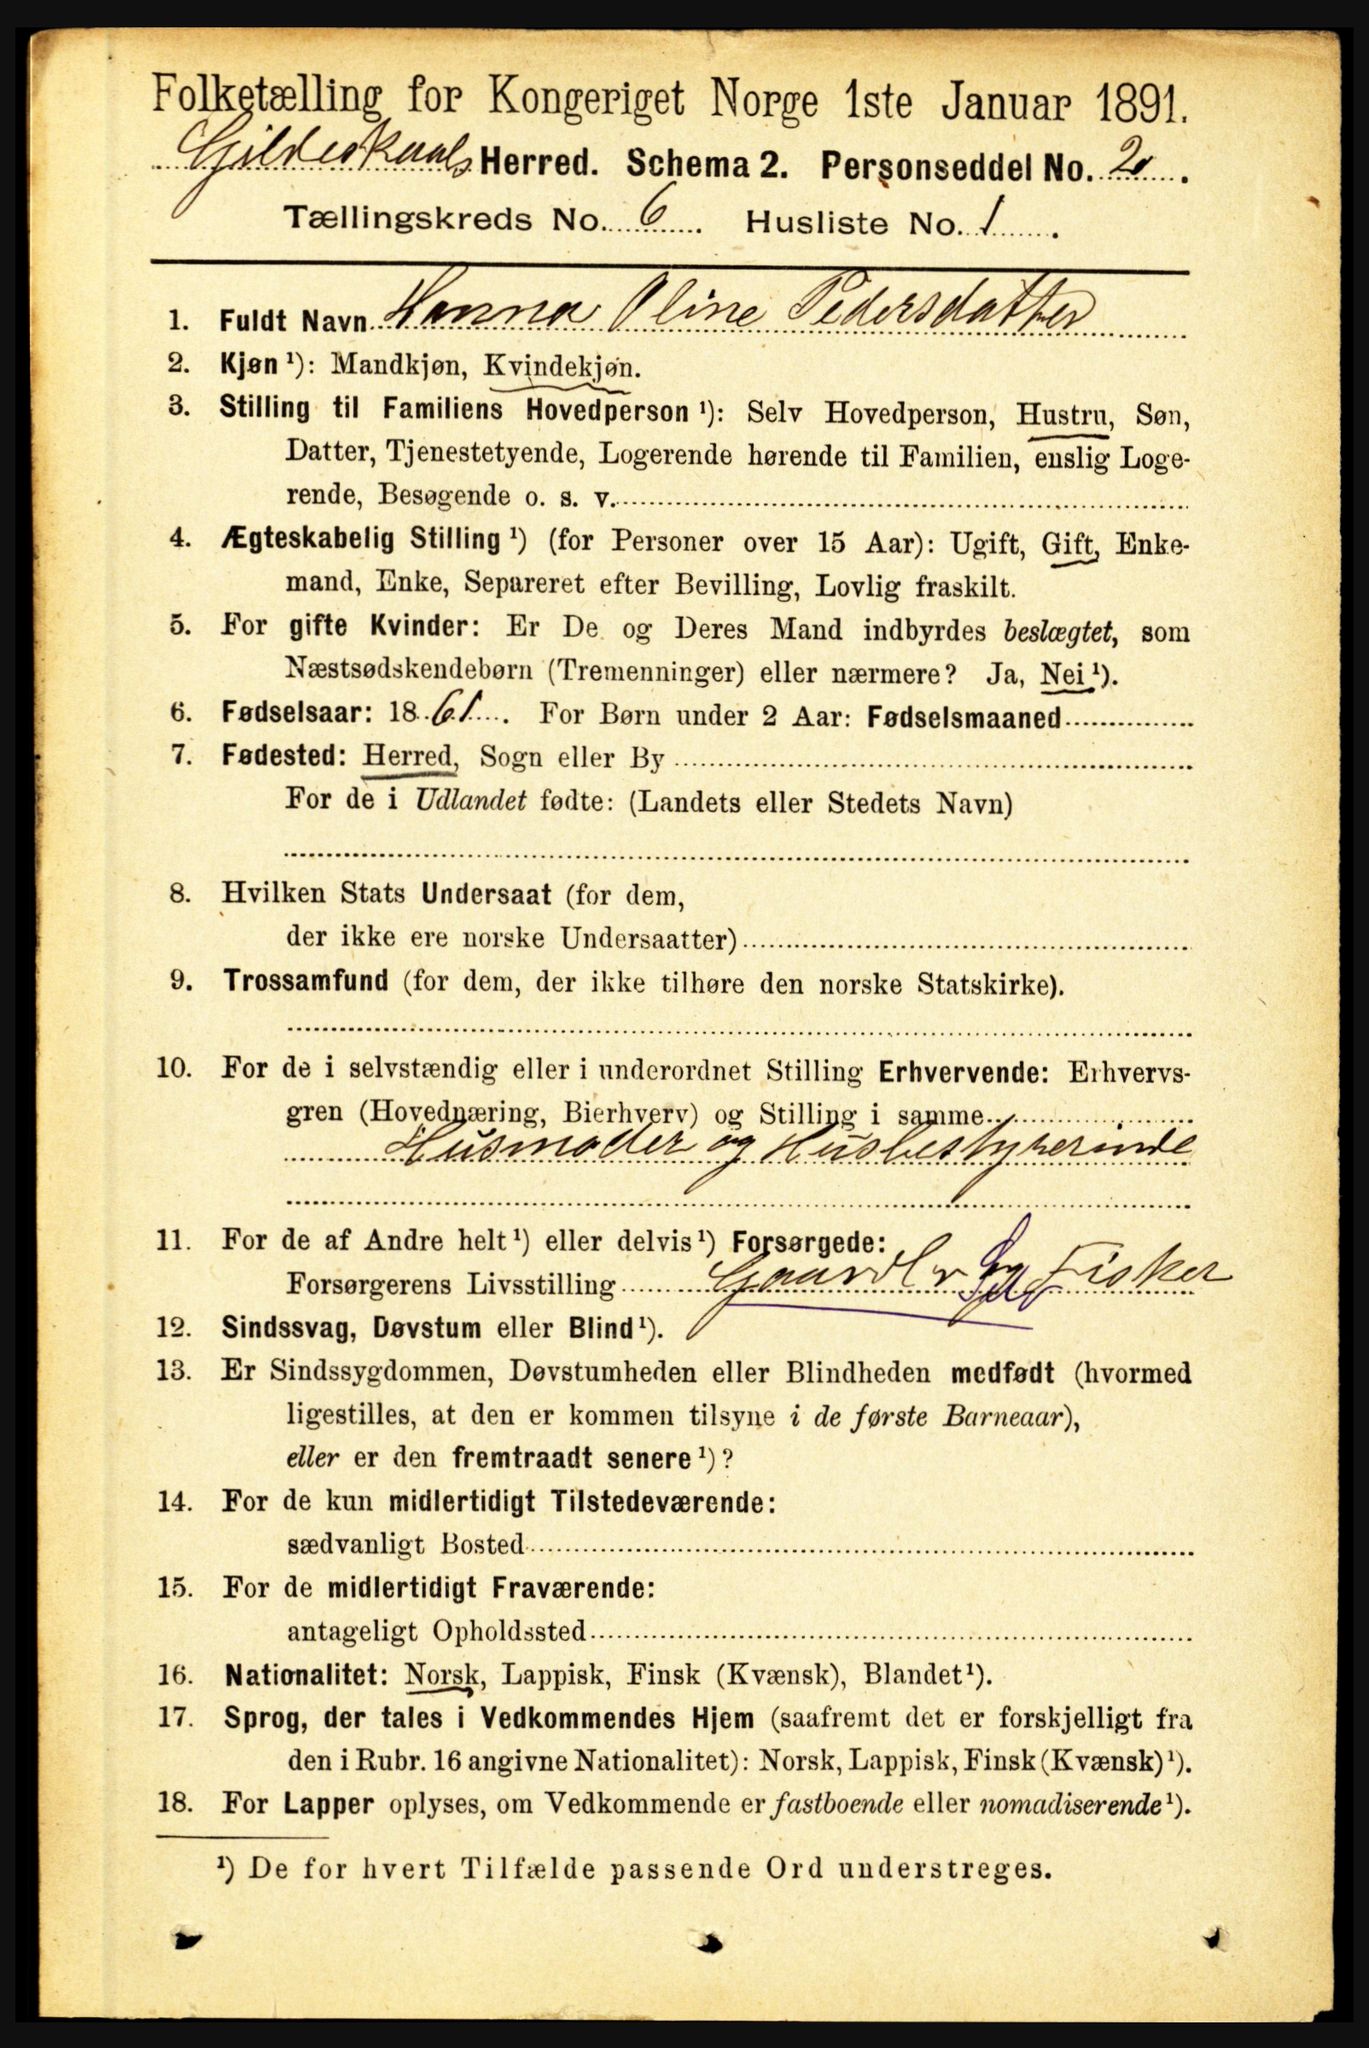 Folketælling for Kongeriget Norge 1ste Januar 1891.
Gildeskaals Herred. Schema 2. Personseddel No. 2.
Tællingskreds No. 6. Husliste No. 1.
1. Fuldt Navn Hanna Oline Pedersdatter
2. Kjøn ¹): Mandkjøn, Kvindekjøn.
3. Stilling til Familiens Hovedperson ¹): Selv Hovedperson, Hustru, Søn,
Datter, Tjenestetyende, Logerende hørende til Familien, enslig Loge-
rende, Besøgende o. s. v.
4. Ægteskabelig Stilling ¹) (for Personer over 15 Aar): Ugift, Gift, Enke-
mand, Enke, Separeret efter Bevilling, Lovlig fraskilt.
5. For gifte Kvinder: Er De og Deres Mand indbyrdes beslægtet, som
Næstsødskendebørn (Tremenninger) eller nærmere? Ja, Nei ¹).
6. Fødselsaar: 1861. For Børn under 2 Aar: Fødselsmaaned
7. Fødested: Herred, Sogn eller By
For de i Udlandet fødte: (Landets eller Stedets Navn)
8. Hvilken Stats Undersaat (for dem,
der ikke ere norske Undersaatter)
9. Trossamfund (for dem, der ikke tilhøre den norske Statskirke).
10. For de i selvstændig eller i underordnet Stilling Erhvervende: Erhvervs-
gren (Hovednæring, Bierhverv) og Stilling i samme
Husmoder og Husbestyrerinde
11. For de af Andre helt ¹) eller delvis ¹) Forsørgede:
Forsørgerens Livsstilling Gaardbr og Fisker
12. Sindssvag, Døvstum eller Blind ¹).
13. Er Sindssygdommen, Døvstumheden eller Blindheden medfødt (hvormed
ligestilles, at den er kommen tilsyne i de første Barneaar),
eller er den fremtraadt senere ¹)?
14. For de kun midlertidigt Tilstedeværende:
sædvanligt Bosted
15. For de midlertidigt Fraværende:
antageligt Opholdssted
16. Nationalitet: Norsk, Lappisk, Finsk (Kvænsk), Blandet ¹).
17. Sprog, der tales i Vedkommendes Hjem (saafremt det er forskjelligt fra
den i Rubr. 16 angivne Nationalitet): Norsk, Lappisk, Finsk (Kvænsk) ¹).
18. For Lapper oplyses, om Vedkommende er fastboende eller nomadiserende ¹).
¹) De for hvert Tilfælde passende Ord understreges.